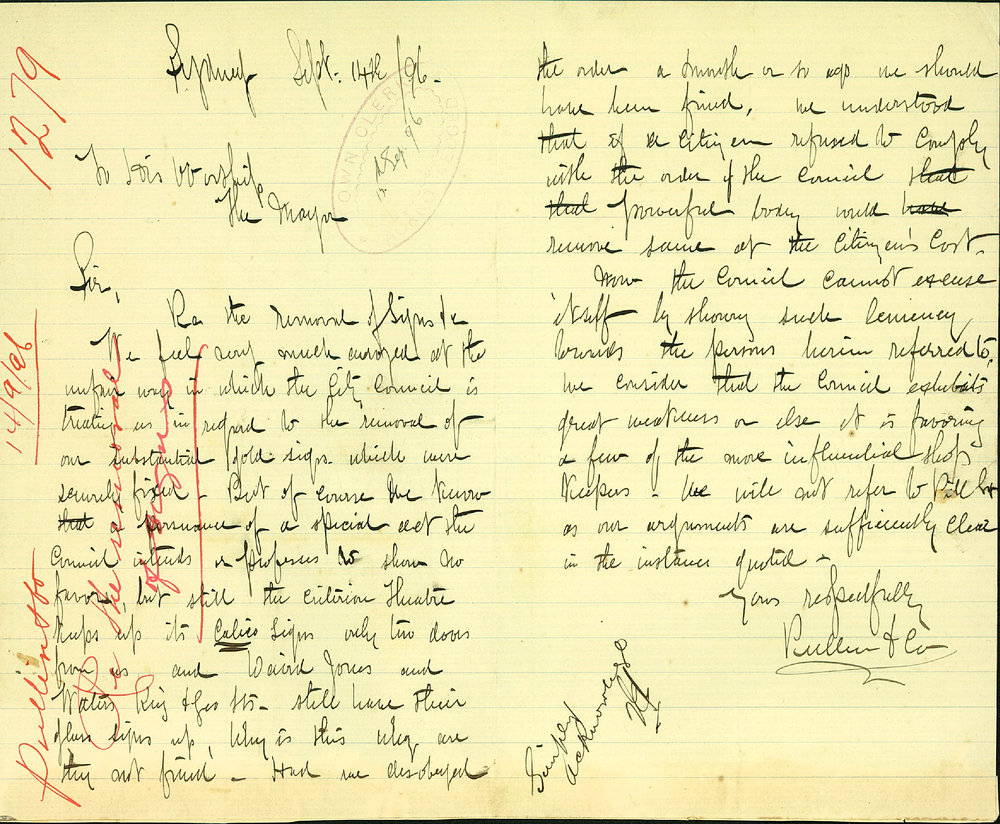 Sydney Sept. 14th /96.
TOWN CLERK
14 Sep. 96
To His Worship
The Mayor
Sir,
Re the removal of Signs &c
We feel very much annoyed at the
unfair way in which the City Council is
treating us in regard to the removal of
our substantial gold signs which were
securely fixed - But of course we know
that a of a special act the
Council intends or professes to show no
favor, but still the Criterion Theatre
keeps up its Calico Signs only two doors
from us and Jones and
Waters King & Geo Sts - still have their
glass signs up, Why is this Why are
they not fined - Had we disobeyed
the order a month or so ago we should
have been fined, we understood
that if a Citizen refused to Comply
with the order of the Council that
that powerful body would have
remove same at the Citizen's Cost.
Now the Council cannot excuse
itself by showing such leniency
towards the persons herein referred to,
we consider that the Council exhibits
great weakness or else it is favoring
a few of the more influential Shop
Keepers - We will not refer to
as our arguments are sufficiently clear
in the instance quoted -
Yours respectfully
Pullin & Co
Simply
acknowledge
1279
14/9/96
Pullin & Co
Re the removal
of signs